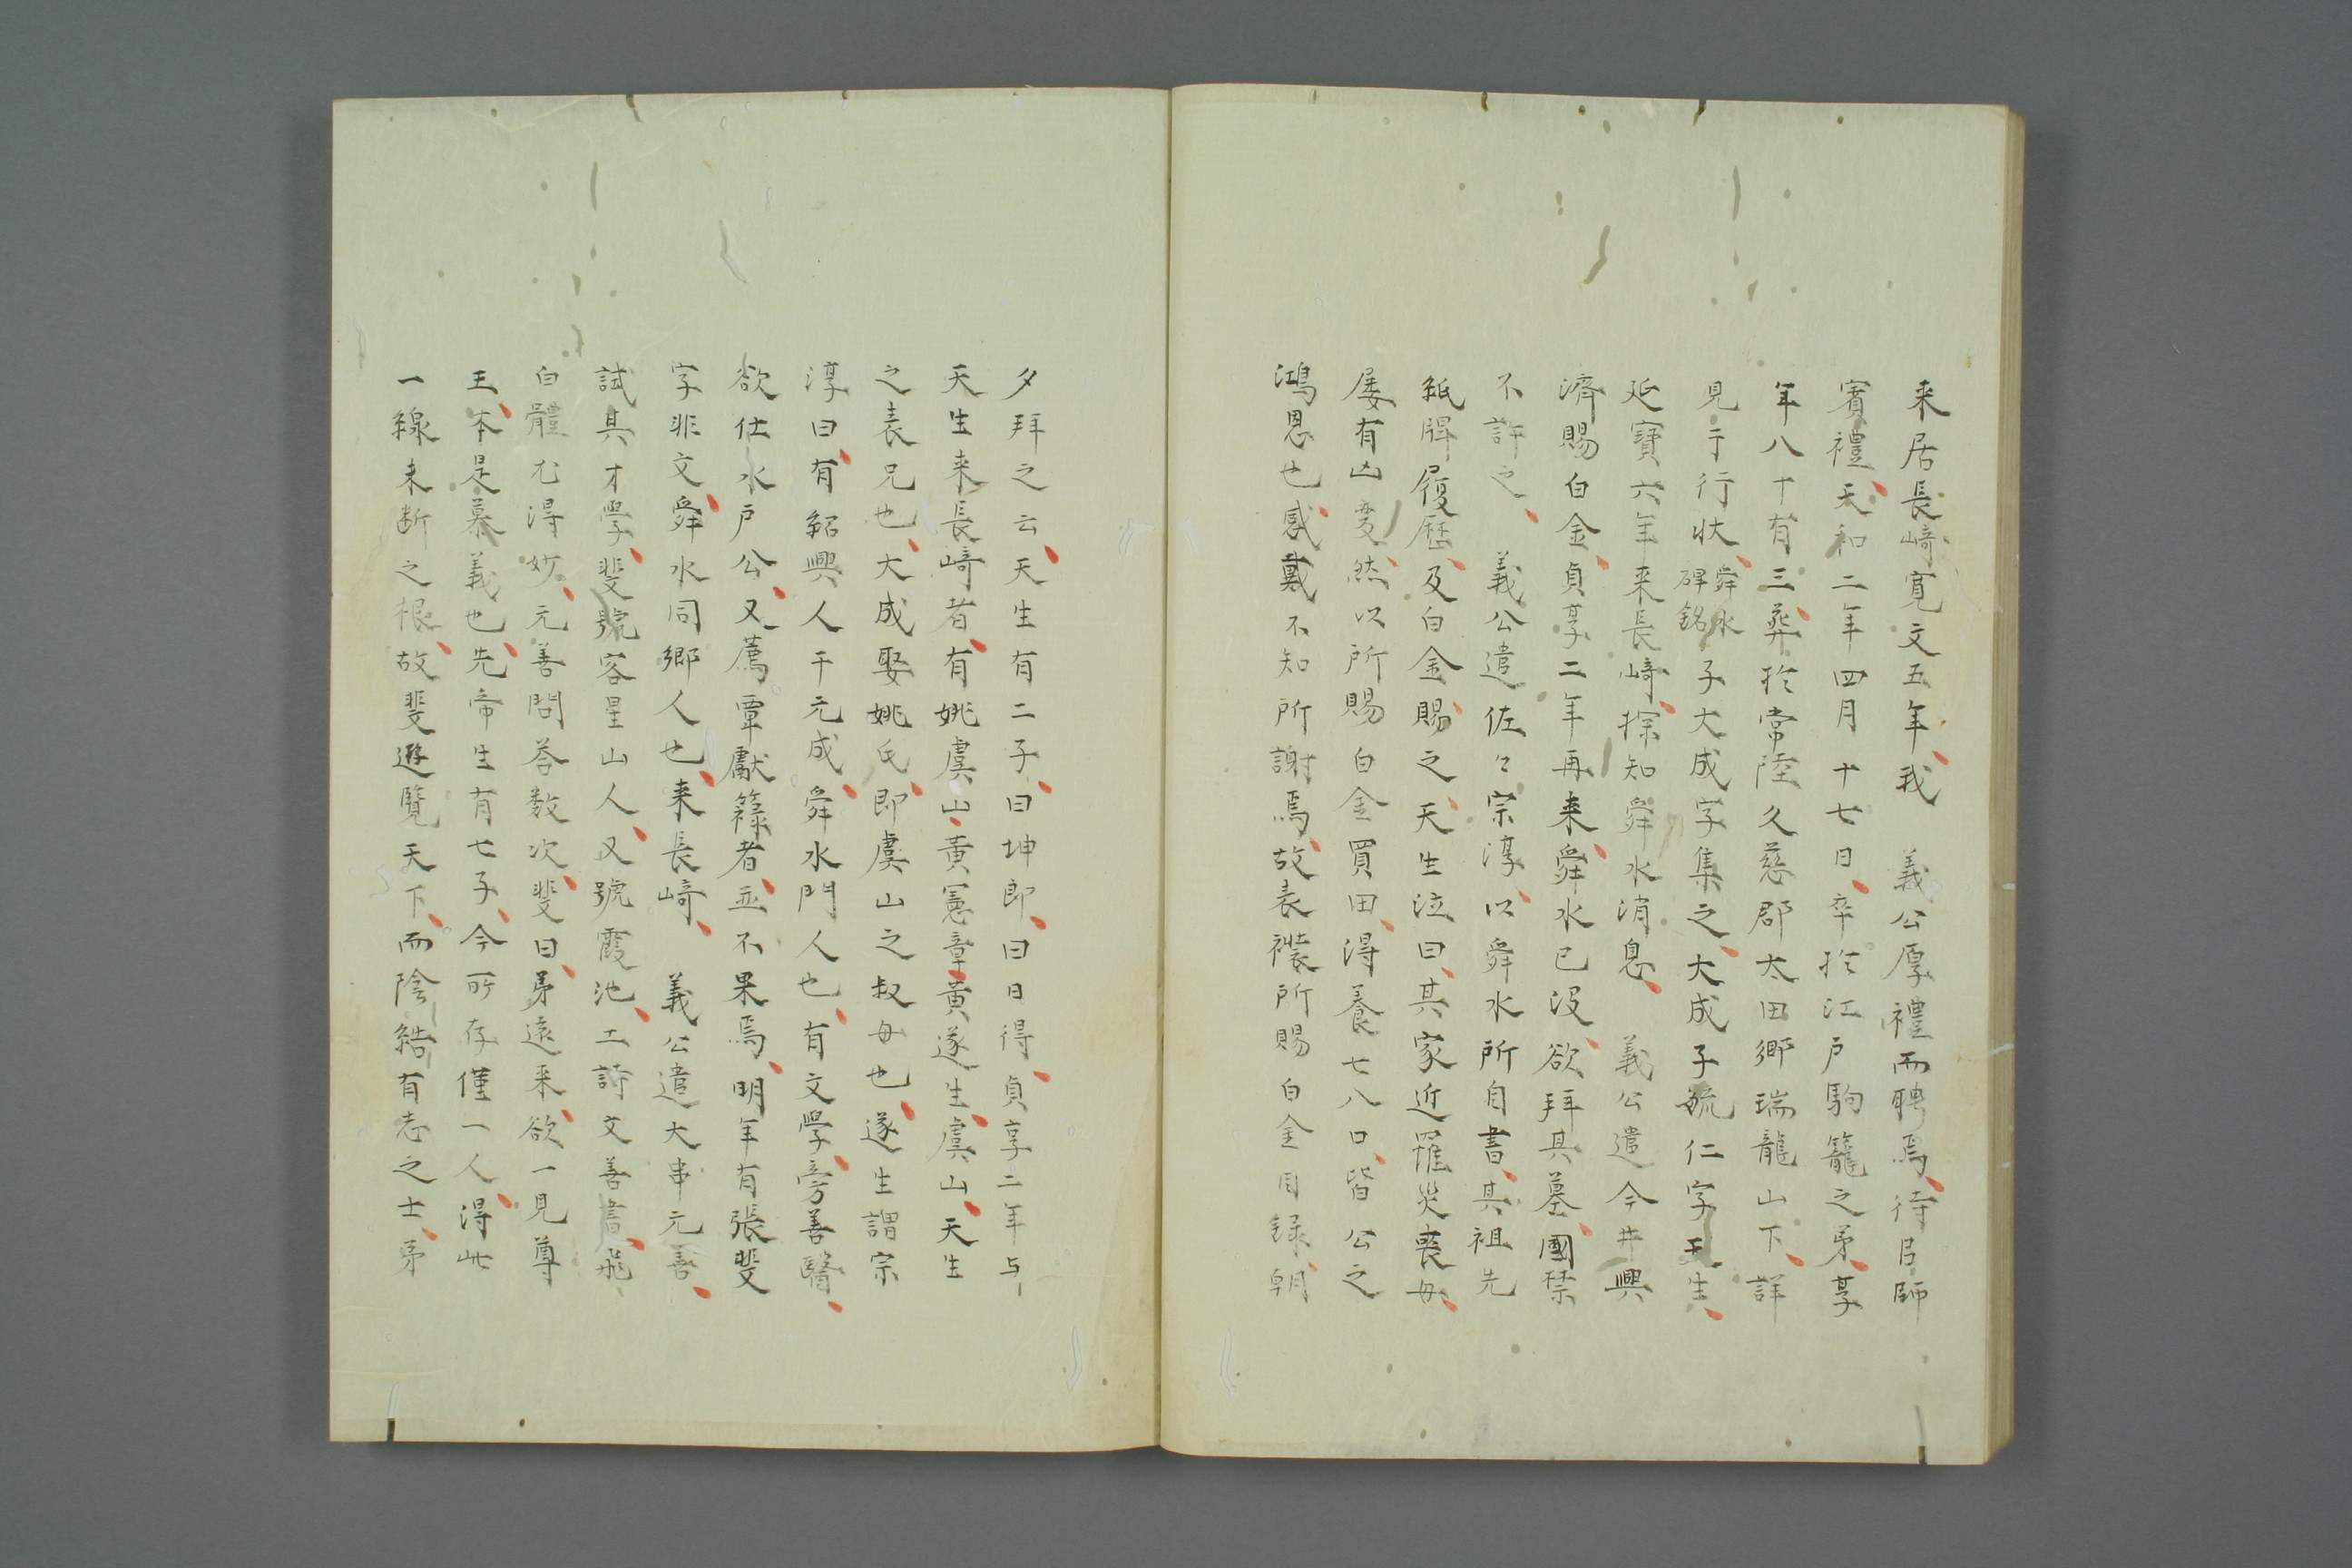 来居長崎寛文五年我　義公厚禮而聘焉待㠯師
賓禮天和二年四月十七日卒於江戸駒籠之第享
年八十有三葬於常陸久慈郡太田郷瑞龍山下詳
見于行状舜水碑銘子大成字集之大成子毓仁字天生
延寶六年来長崎探知舜水消息　義公遣今井興
濟賜白金貞享二年再来舜水已没欲拜其墓國禁
不許之　義公遣佐々宗淳以舜水所自書其祖先
紙牌履歷及白金賜之天生泣曰其家近罹災喪母
屡有凶変然以所賜白金買田得養七八口皆公之
鴻恩也感戴不知所謝焉故表褾所賜白金目録朝
夕拜之云天生有二子曰坤郎曰日得貞享二年与
天生来長崎者有姚虞山黄憲章黄遂生虞山天生
之表兄也大成娶姚氏即虞山之叔母也遂生謂宗
淳曰有紹興人干元成舜水門人也有文學旁善醫
欲仕水戸公又薦覃獻籙者並不果焉明年有張斐
字非文舜水同郷人也来長崎　義公遣大串元善
試其才學斐號客星山人又號霞池工詩文善書飛
白體尤得妙元善問荅数次斐曰弟遠来欲一見尊
王本是慕義也先帝生有七子今所存僅一人得此
一線未断之根故斐遊覽天下而陰結有志之士弟